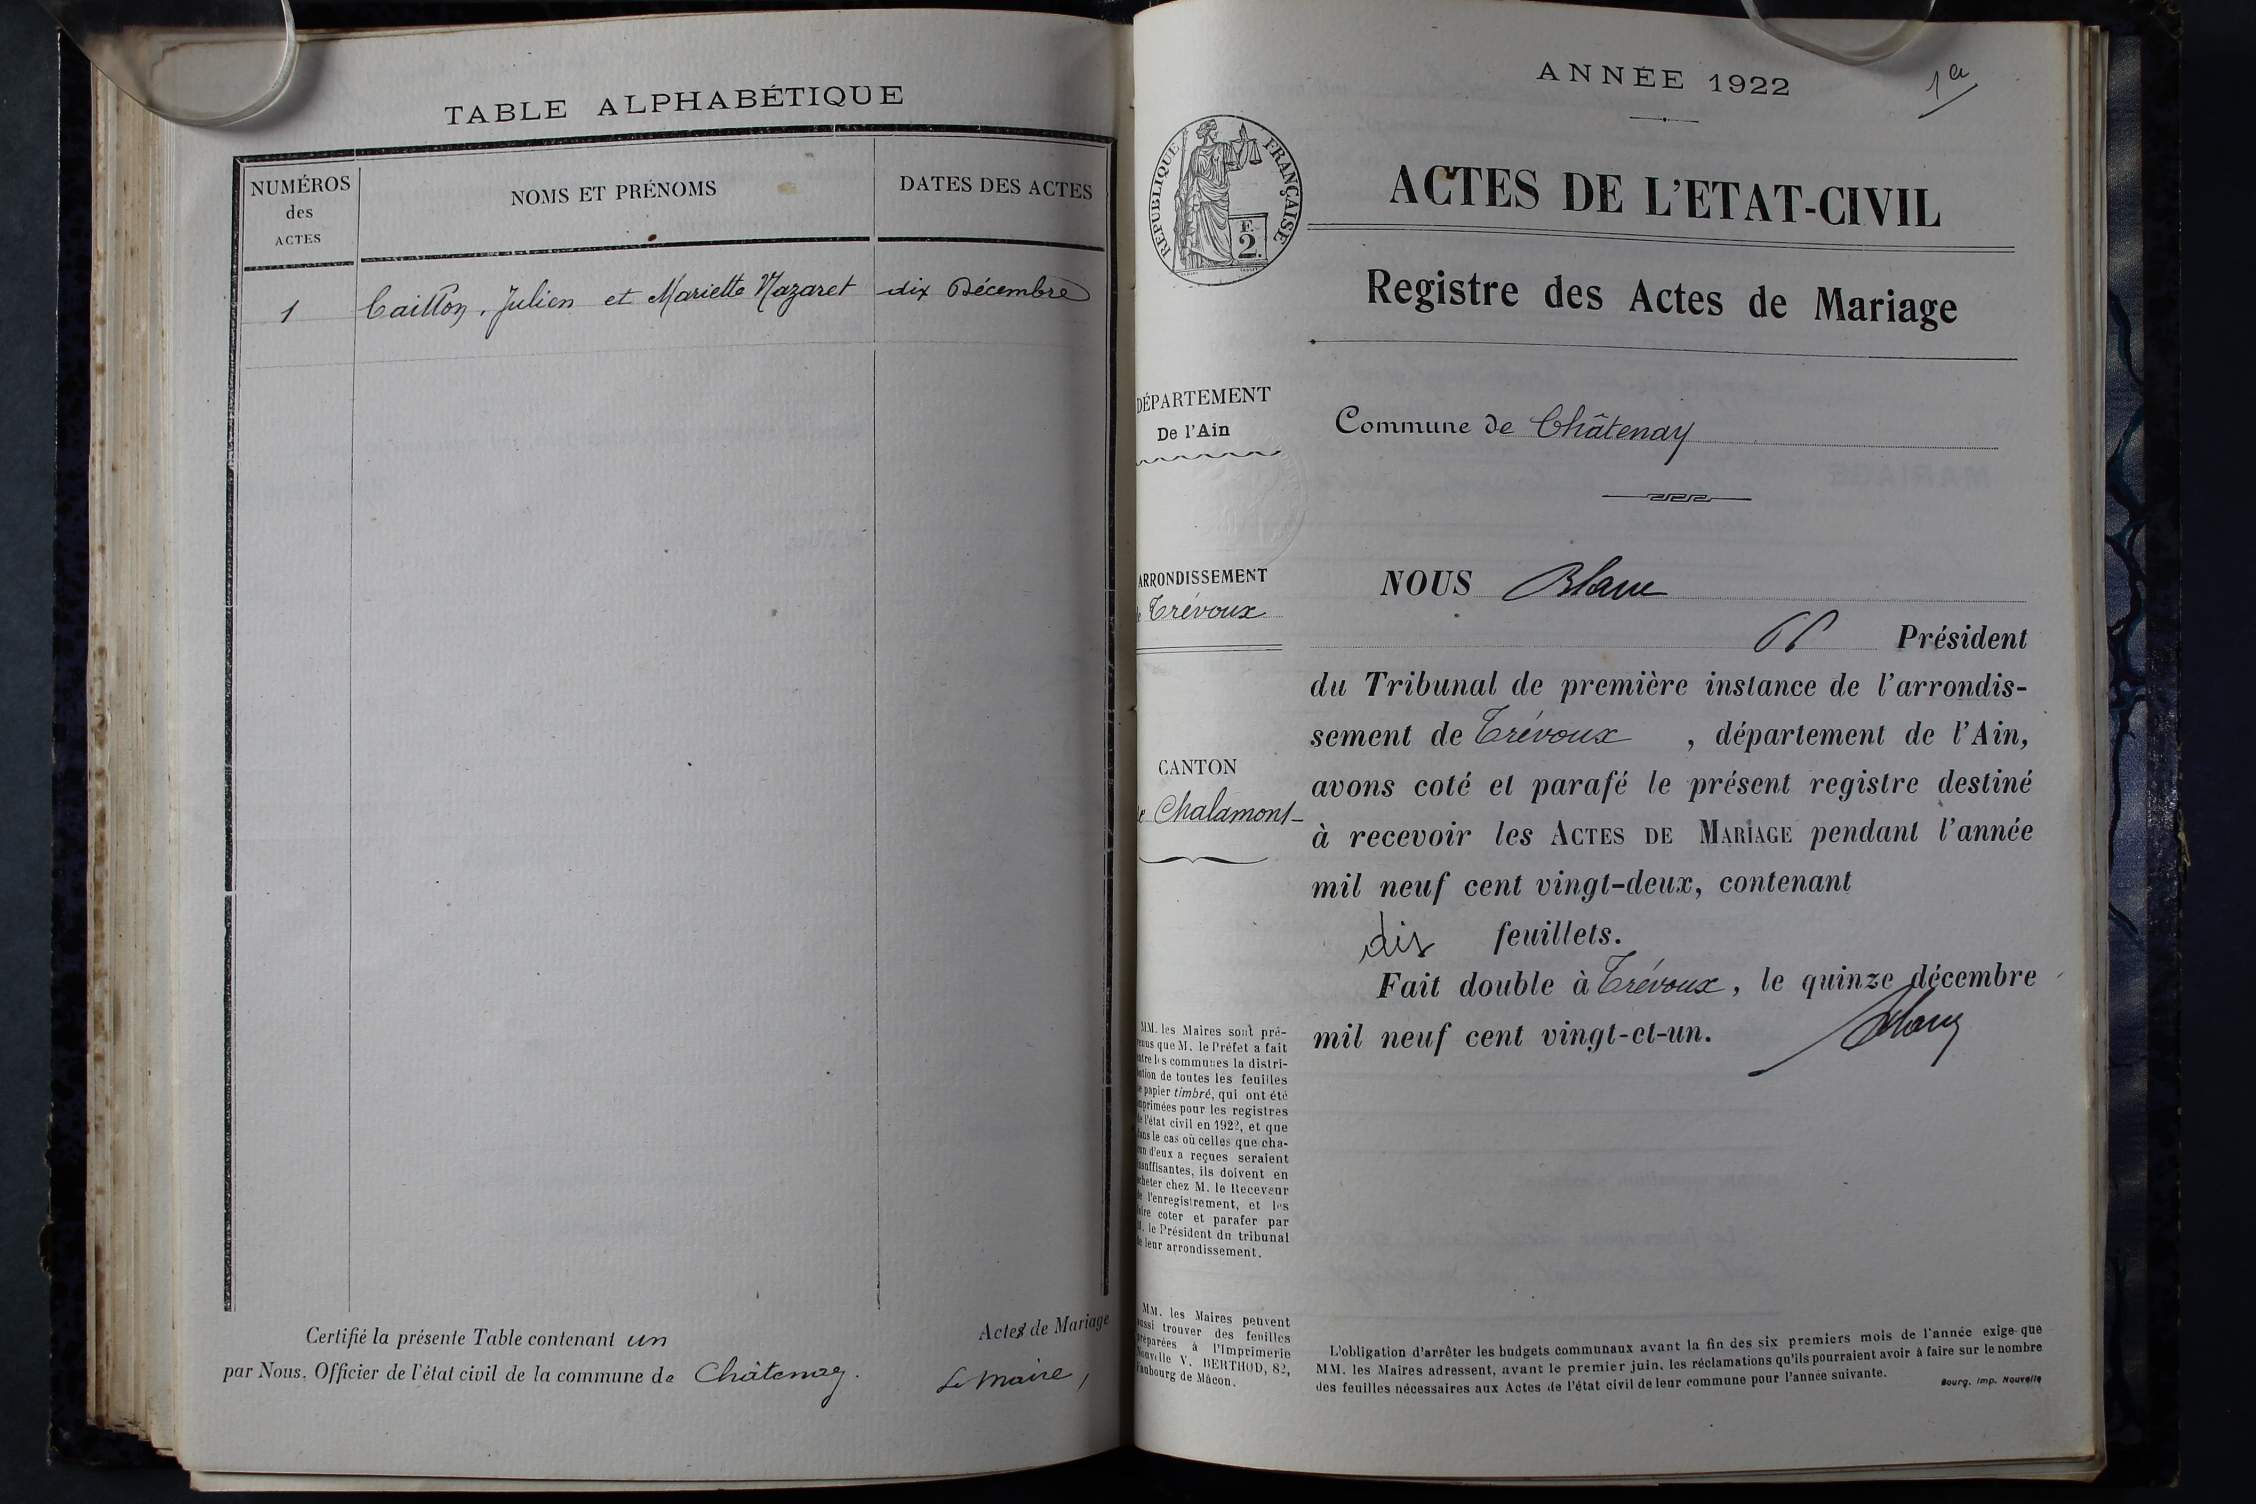 TABLE ALPHABÉTIQUE
NUMÉROS
des
ACTES
NOMS ET PRÉNOMS
DATES DES ACTES
1 Caillon, Julien et Mariette Nazaret dix Décembre
Certifié la présente Table contenant un Actes de Mariage
par Nous, Officier de l'état civil de la commune de Châtenay. Le Maire,
ANNÉE 1922
1er
RÉPUBLIQUE FRANÇAISE
2
F.
ACTES DE L'ETAT-CIVIL
Registre des Actes de Mariage
DÉPARTEMENT
De l'Ain
Commune de Châtenay
ARRONDISSEMENT
de Trévoux
CANTON
de Chalamont
NOUS Blanc
Président
du Tribunal de première instance de l'arrondis-
sement de Trévoux, département de l'Ain,
avons coté et parafé le présent registre destiné
à recevoir les ACTES DE MARIAGE pendant l'année
mil neuf cent vingt-deux, contenant
dix feuillets.
Fait double à Trévoux, le quinze décembre
mil neuf cent vingt-et-un.
Blanc
MM. les Maires sont pré-
venus que M. le Préfet a fait
entre les communes la distri-
bution de toutes les feuilles
de papier timbré, qui ont été
imprimées pour les registres
de l'état civil en 1922, et que
dans le cas où celles que cha-
cun d'eux a reçues seraient
insuffisantes, ils doivent en
acheter chez M. le Receveur
de l'enregistrement, et les
faire coter et parafer par
M. le Président du tribunal
de leur arrondissement.
MM. les Maires peuvent
aussi trouver des feuilles
préparées à l'Imprimerie
Nouvelle V. BERTHOD, 82,
Faubourg de Mâcon.
L'obligation d'arrêter les budgets communaux avant la fin des six premiers mois de l'année exige que
MM. les Maires adressent, avant le premier juin, les réclamations qu'ils pourraient avoir à faire sur le nombre
des feuilles nécessaires aux Actes de l'état civil de leur commune pour l'année suivante.
Bourg. Imp. Nouvelle